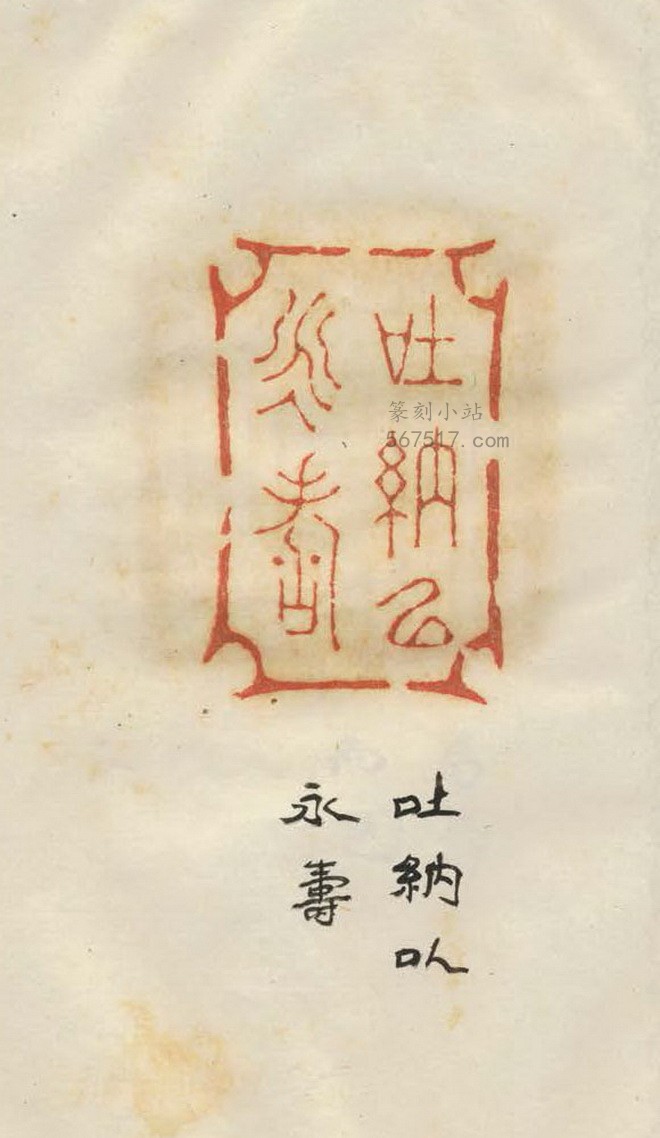 吐納㠯
永壽
篆刻小站
567517.com
吐納以
永壽